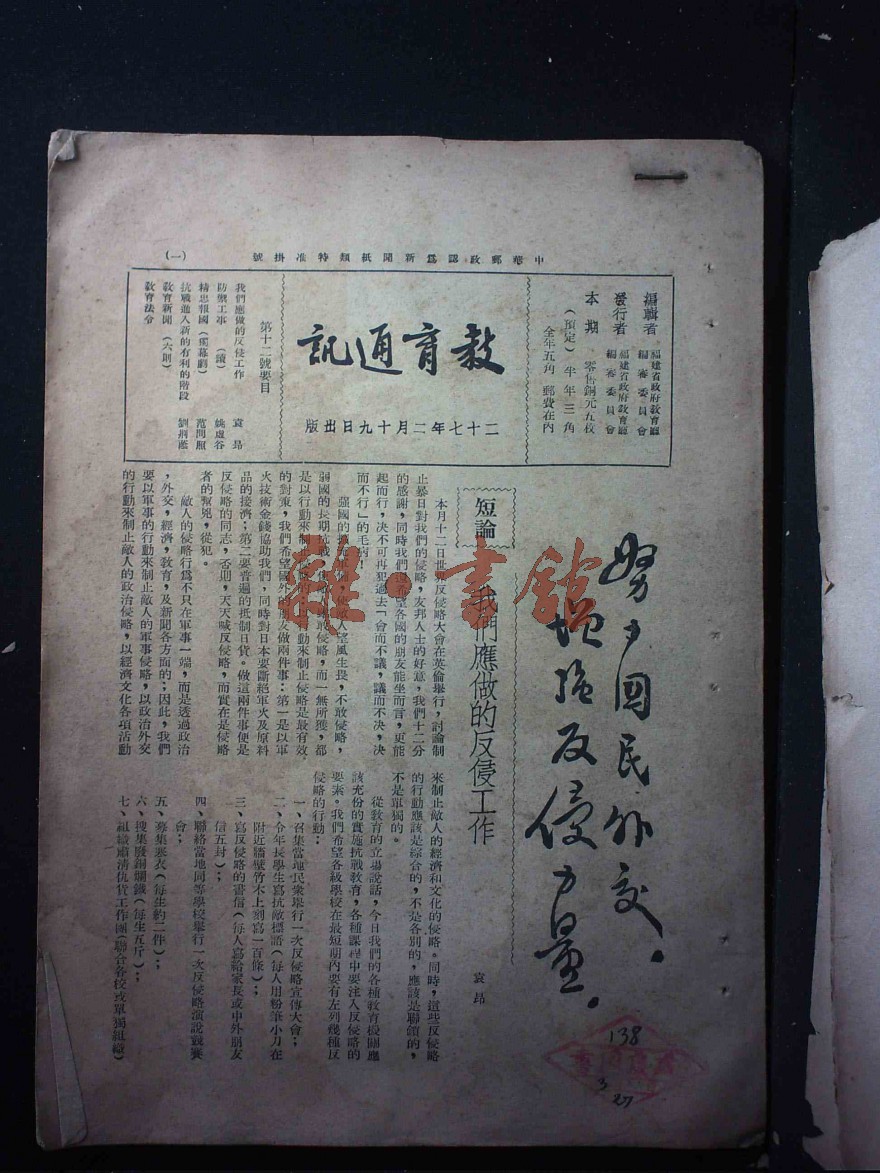 中華郵政認爲新聞紙類特准掛號
(一)
編輯者 福建省政府教育廳編審委員會
發行者 福建省政府教育廳編審委員會
本期 零售銅元五枚
(預定) 半年三角
全年五角 郵費在內
教育通訊
二十七年二月十九日出版
第十二號要目
我們應做的反侵工作 袁昂
防禦工事 (續) 姚虛谷
精忠報國 (獨幕劇) 范問照
抗戰進入新的有利的階段
教育新聞 (六則)
教育法令
努力國民外交。
增強反侵力量。
短論
我們應做的反侵工作
袁昂
本月十二日世界反侵略大會在英倫舉行,討論制
止暴日對我們的侵略,友邦人士的好意,我們十二分
的感謝,同時我們也希望各國的朋友能坐而言,更能
起而行,决不可再犯過去「會而不議,議而不决,决
而不行」的毛病!
望風生畏,不敢侵略,
弱國的長期抗戰,侵略,而一無所獲,都
是以行動來制止侵略的,行動來制止侵略是最有效
的對策,我們希望國外的朋友做兩件事:第一是以軍
火技術金錢協助我們,同時對日本要斷絕軍火及原料
品的接濟;第二要普遍的抵制日貨。做這兩件事便是
反侵略的同志,否則,天天喊反侵略,而實在是侵略
者的幫兇,從犯。
敵人的侵略行爲不只在軍事一端,而是透過政治
,外交,經濟,教育,及新聞各方面的;因此,我們
要以軍事的行動來制止敵人的軍事侵略,以政治外交
的行動來制止敵人的政治侵略,以經濟文化各項活動
來制止敵人的經濟和文化的侵略。同時,這些反侵略
的行動應該是綜合的,不是各別的,應該是聯鎖的,
不是單獨的。
從教育的立場說話,今日我們的各種教育機關應
該充份的實施抗戰教育,各種課程中要注入反侵略的
要素。我們希望各級學校在最短期內要有左列幾種反
侵略的行動:
一、召集當地民衆舉行一次反侵略宣傳大會;
二、令年長學生寫抗敵標語(每人用粉筆小刀在
附近牆壁竹木上刻寫一百條);
三、寫反侵略的書信(每人寫給家長或中外朋友
信五封);
四、聯絡當地同等學校舉行一次反侵略演說競賽
會;
五、募集寒衣(每生約二件);
六、搜集廢銅爛鐵(每生五斤);
七、組織肅清仇貨工作團(聯合各校或單獨組織)
雜·書館
138
3
27